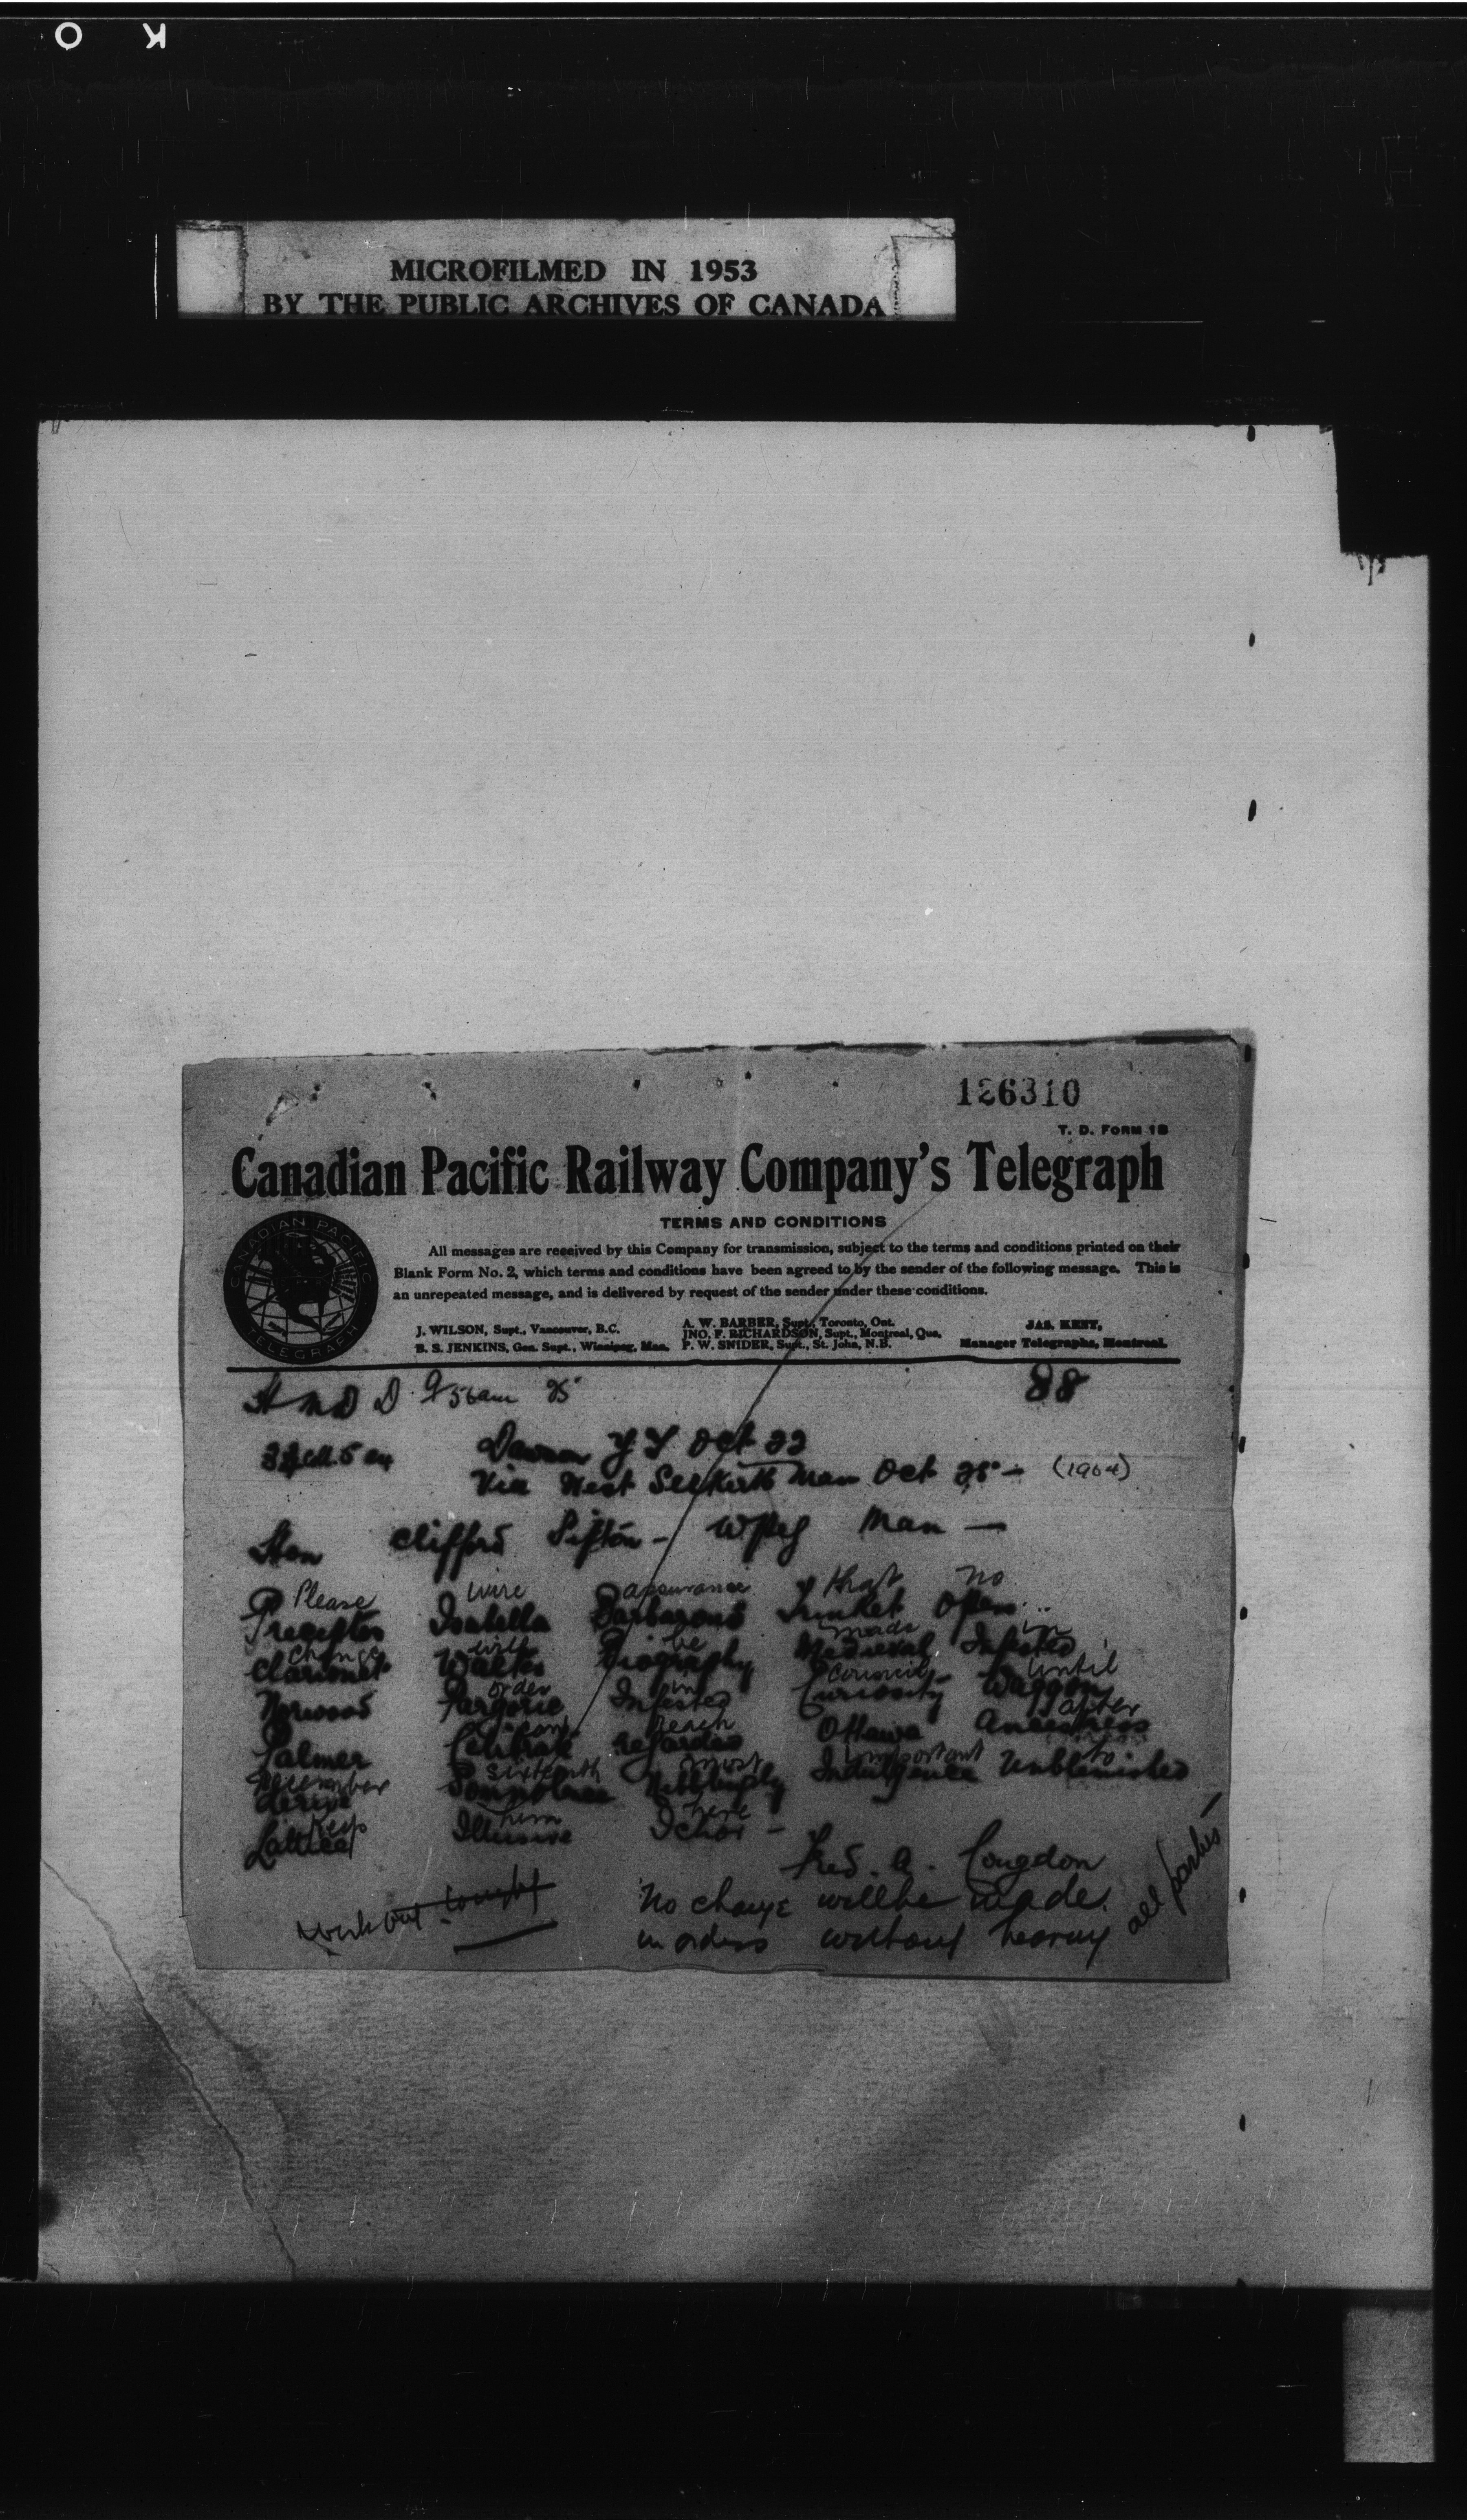 O K
MICROFILMED IN 1953
BY THE PUBLIC ARCHIVES OF CANADA
126310
T. D. FORM 1B
Canadian Pacific Railway Company's Telegraph
TERMS AND CONDITIONS
CANADIAN PACIFIC TELEGRAPH
All messages are received by this Company for transmission, subject to the terms and conditions printed on their
Blank Form No. 2, which terms and conditions have been agreed to by the sender of the following message. This is
an unrepeated message, and is delivered by request of the sender under these conditions.
J. WILSON, Supt., Vancouver, B.C.
B. S. JENKINS, Gen. Supt., Winnipeg, Man.
A. W. BARBER, Supt., Toronto, Ont.
JNO. F. RICHARDSON, Supt., Montreal, Que.
P. W. SNIDER, Supt., St. John, N.B.
JAS. KENT,
Manager Telegraphs, Montreal.
D 956am 25
88
Dawson Y T Oct 22
Via West Selkirk Man Oct 25 - (1904)
Hon Clifford Sifton - Wpeg Man -
Please wire assurance that no
Preceptor Isabella Barbarous Trinket Open
change will be made in
Clarionet Walter Biography Medieval Infested
order in council until
Norwood Marjorie Infested Curiosity Waggon
can reach after
Palmer Central regardes Ottawa Ancestress
December sixteenth most important to
derive Somnolence Indulgence Unblemished
keep him here
Lattice Illusive Ichor -
Fred. A. Congdon
No change will be made
in orders without hearing
all parties